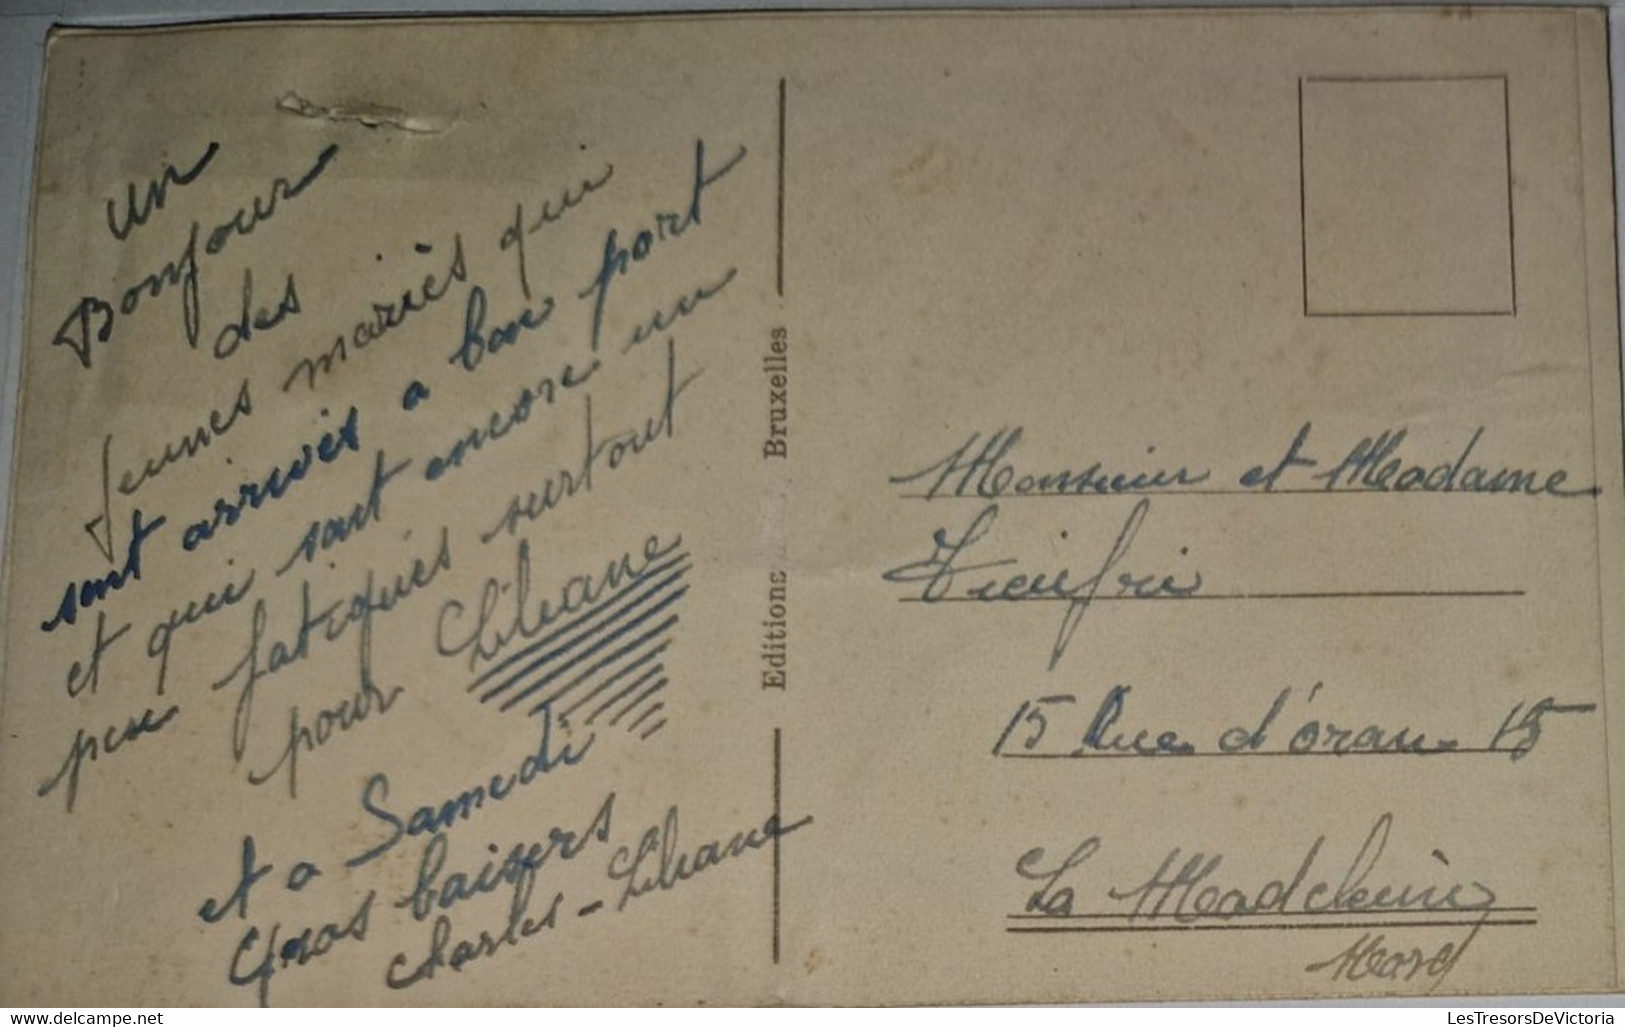 Un
Bonjour
des
jeunes mariès qui
sont arrivés a bon port
et qui sont encore un
peu fatiqués surtout
pour Liliane
et a Samedi
Gros baisers
Charles - Liliane
Editions Bruxelles
Monsieur et Madame
15 Rue d'oran 15
La Madeleine
Nord
delcampe.net
LesTresorsDeVictoria